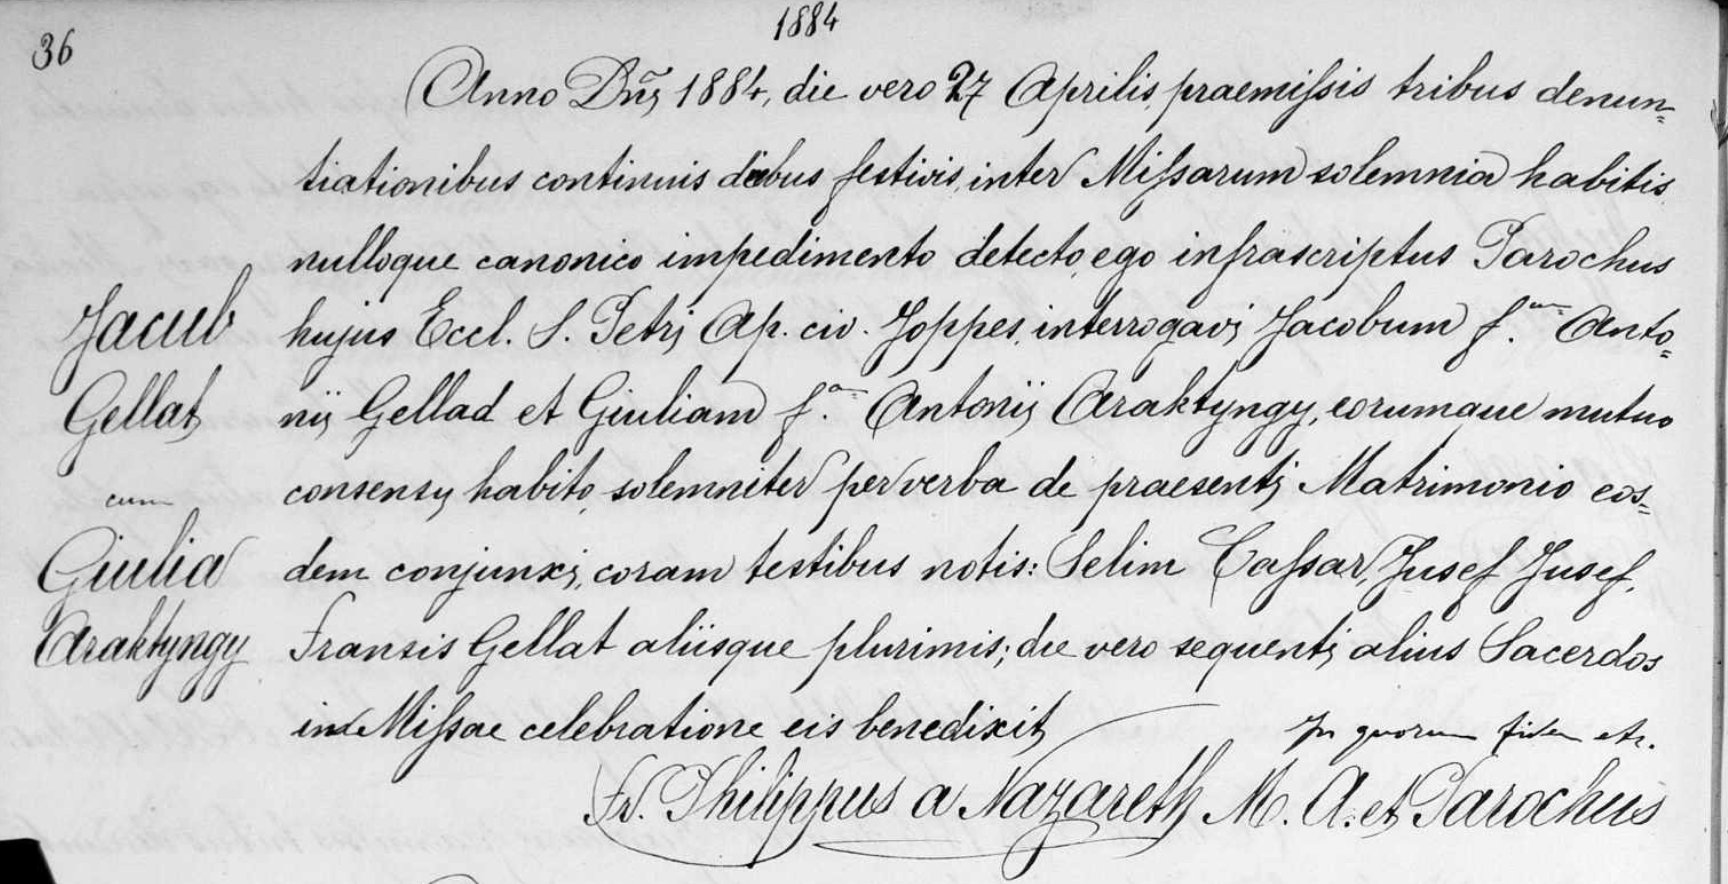 1884
36
Anno Dñj 1884, die vero 27 Aprilis, praemissis tribus denun=
tiationibus continuis diebus festivis, inter Missarum solemnia habitis,
nulloque canonico impedimento detecto, ego infrascriptus Parochus
hujus Eccl. S. Petrj Ap. civ. Joppes, interrogavj Jacobum f.um Anto=
nij Gellad et Giuliam f.am Antonij Araktyngy, eorumque mutuo
consensu habito, solemniter per verba de praesentj Matrimonio eos=
dem conjunxj, coram testibus notis: Selim Cassar, Jusef Jusef,
Fransis Gellat aliisque plurimis; die vero sequentj alius Sacerdos
in Missae celebratione eis benedixit
In quorum fidem etc.
Fr. Philippus a Nazareth M. A. et Parochus
Jacub
Gellat
cum
Giulia
Araktyngy